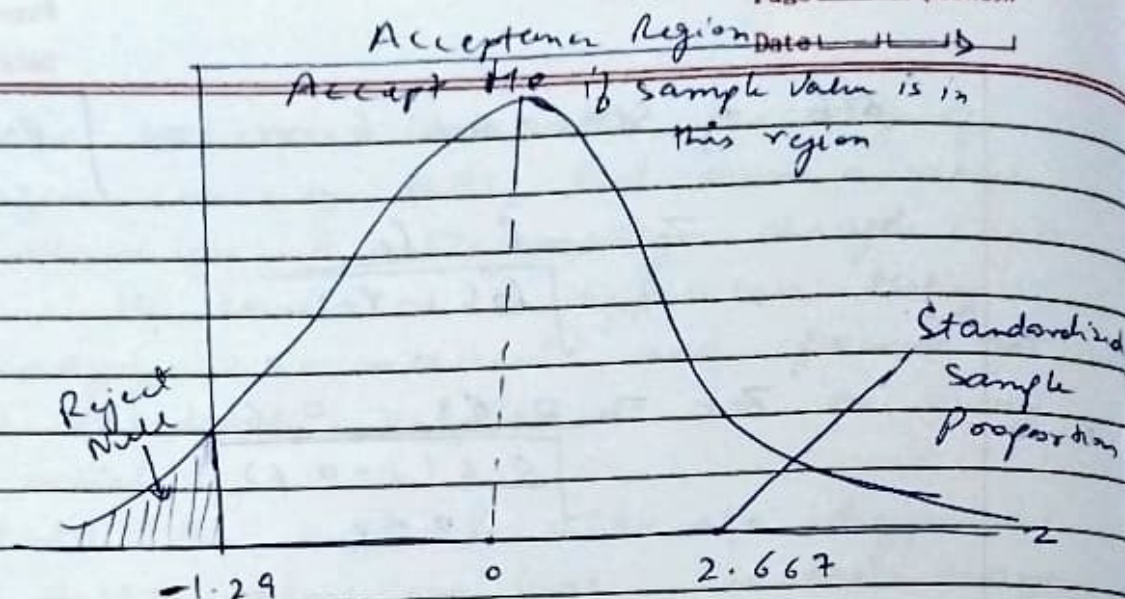 Page
Date
Acceptance Region
Accept Ho if sample value is in
this region
Standardized
Sample
Proportion
Reject
Null
Z
-1.29
0
2.667